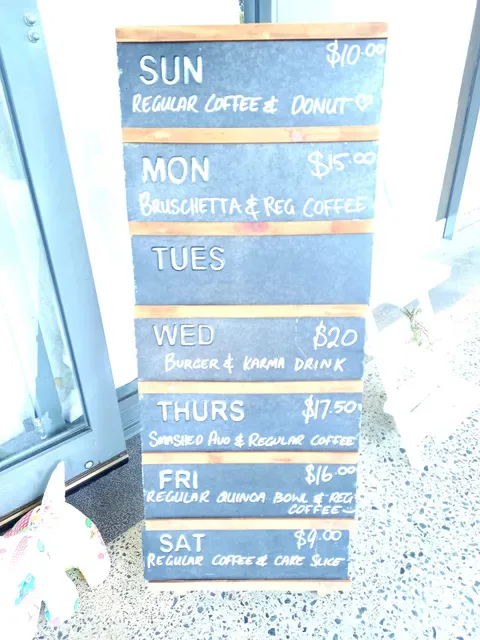 SUN $10.00
REGULAR COFFEE & DONUT♡
MON $15.00
BRUSCHETTA & REG COFFEE
TUES
WED $20
BURGER & KARMA DRINK
THURS $17.50
SMASHED AVO & REGULAR COFFEE
FRI $16.00
REGULAR QUINOA BOWL & REG
COFFEE
SAT $9.00
REGULAR COFFEE & CAKE SLICE